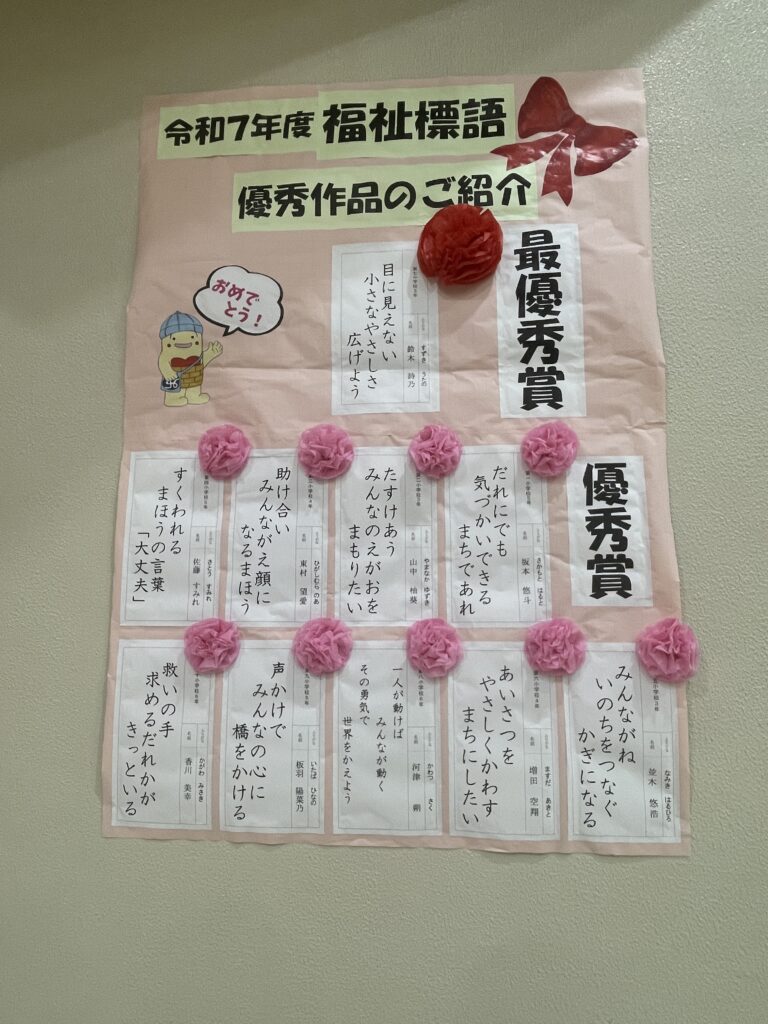 令和7年度 福祉標語
優秀作品のご紹介
おめで
とう！
最優秀賞
目に見えない
小さなやさしさ
広げよう
第七小学校5年
名前
すずき うたの
鈴木 詩乃
優秀賞
だれにでも
気づかいできる
まちであれ
第一小学校5年
名前
さかもと はると
坂本 悠斗
たすけあう
みんなのえがおを
まもりたい
名前
やまなか ゆずき
山中 柚葵
助け合い
みんながえ顔に
なるまほう
名前
ひがしむら のあ
東村 望愛
すくわれる
まほうの言葉
「大丈夫」
第四小学校5年
名前
さとう すみれ
佐藤 すみれ
みんながね
いのちをつなぐ
かぎになる
名前
なみき はるひろ
並木 悠浩
あいさつを
やさしくかわす
まちにしたい
第六小学校4年
名前
ますだ あきと
増田 空翔
一人が動けば
みんなが動く
その勇気で
世界をかえよう
名前
かわつ さく
河津 朔
声かけで
みんなの心に
橋をかける
名前
いたば ひなの
板羽 陽菜乃
救いの手
求めるだれかが
きっといる
名前
かがわ みさき
香川 美幸